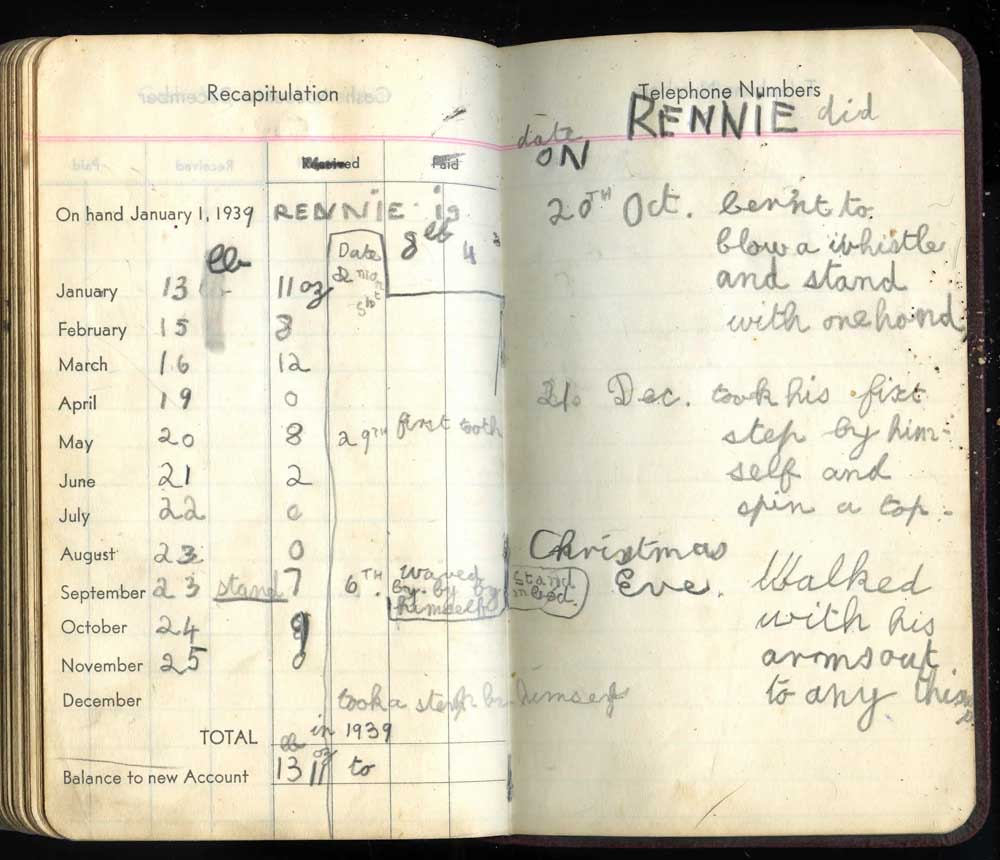 Recapitulation
Paid Received Received Paid
On hand January 1, 1939 RENNIE is
8 lb 4
lb Date
January 13 11 oz
February 15 8
March 16 12
April 19 0
May 20 8 29TH first tooth
June 21 2
July 22 0
August 23 0
September 23 stand 7 6.TH waved
by. by by
himself
stand
in bed.
October 24
November 25 0
December took a step by himself
TOTAL in 1939
lb oz
Balance to new Account 13 11 to
Telephone Numbers
RENNIE did
date
ON
20TH Oct. lern't to
blow a whistle
and stand
with one hand
Dec. took his first
step by him-
self and
spin a top.
Christmas
Eve. Walked
with his
arms out
to any